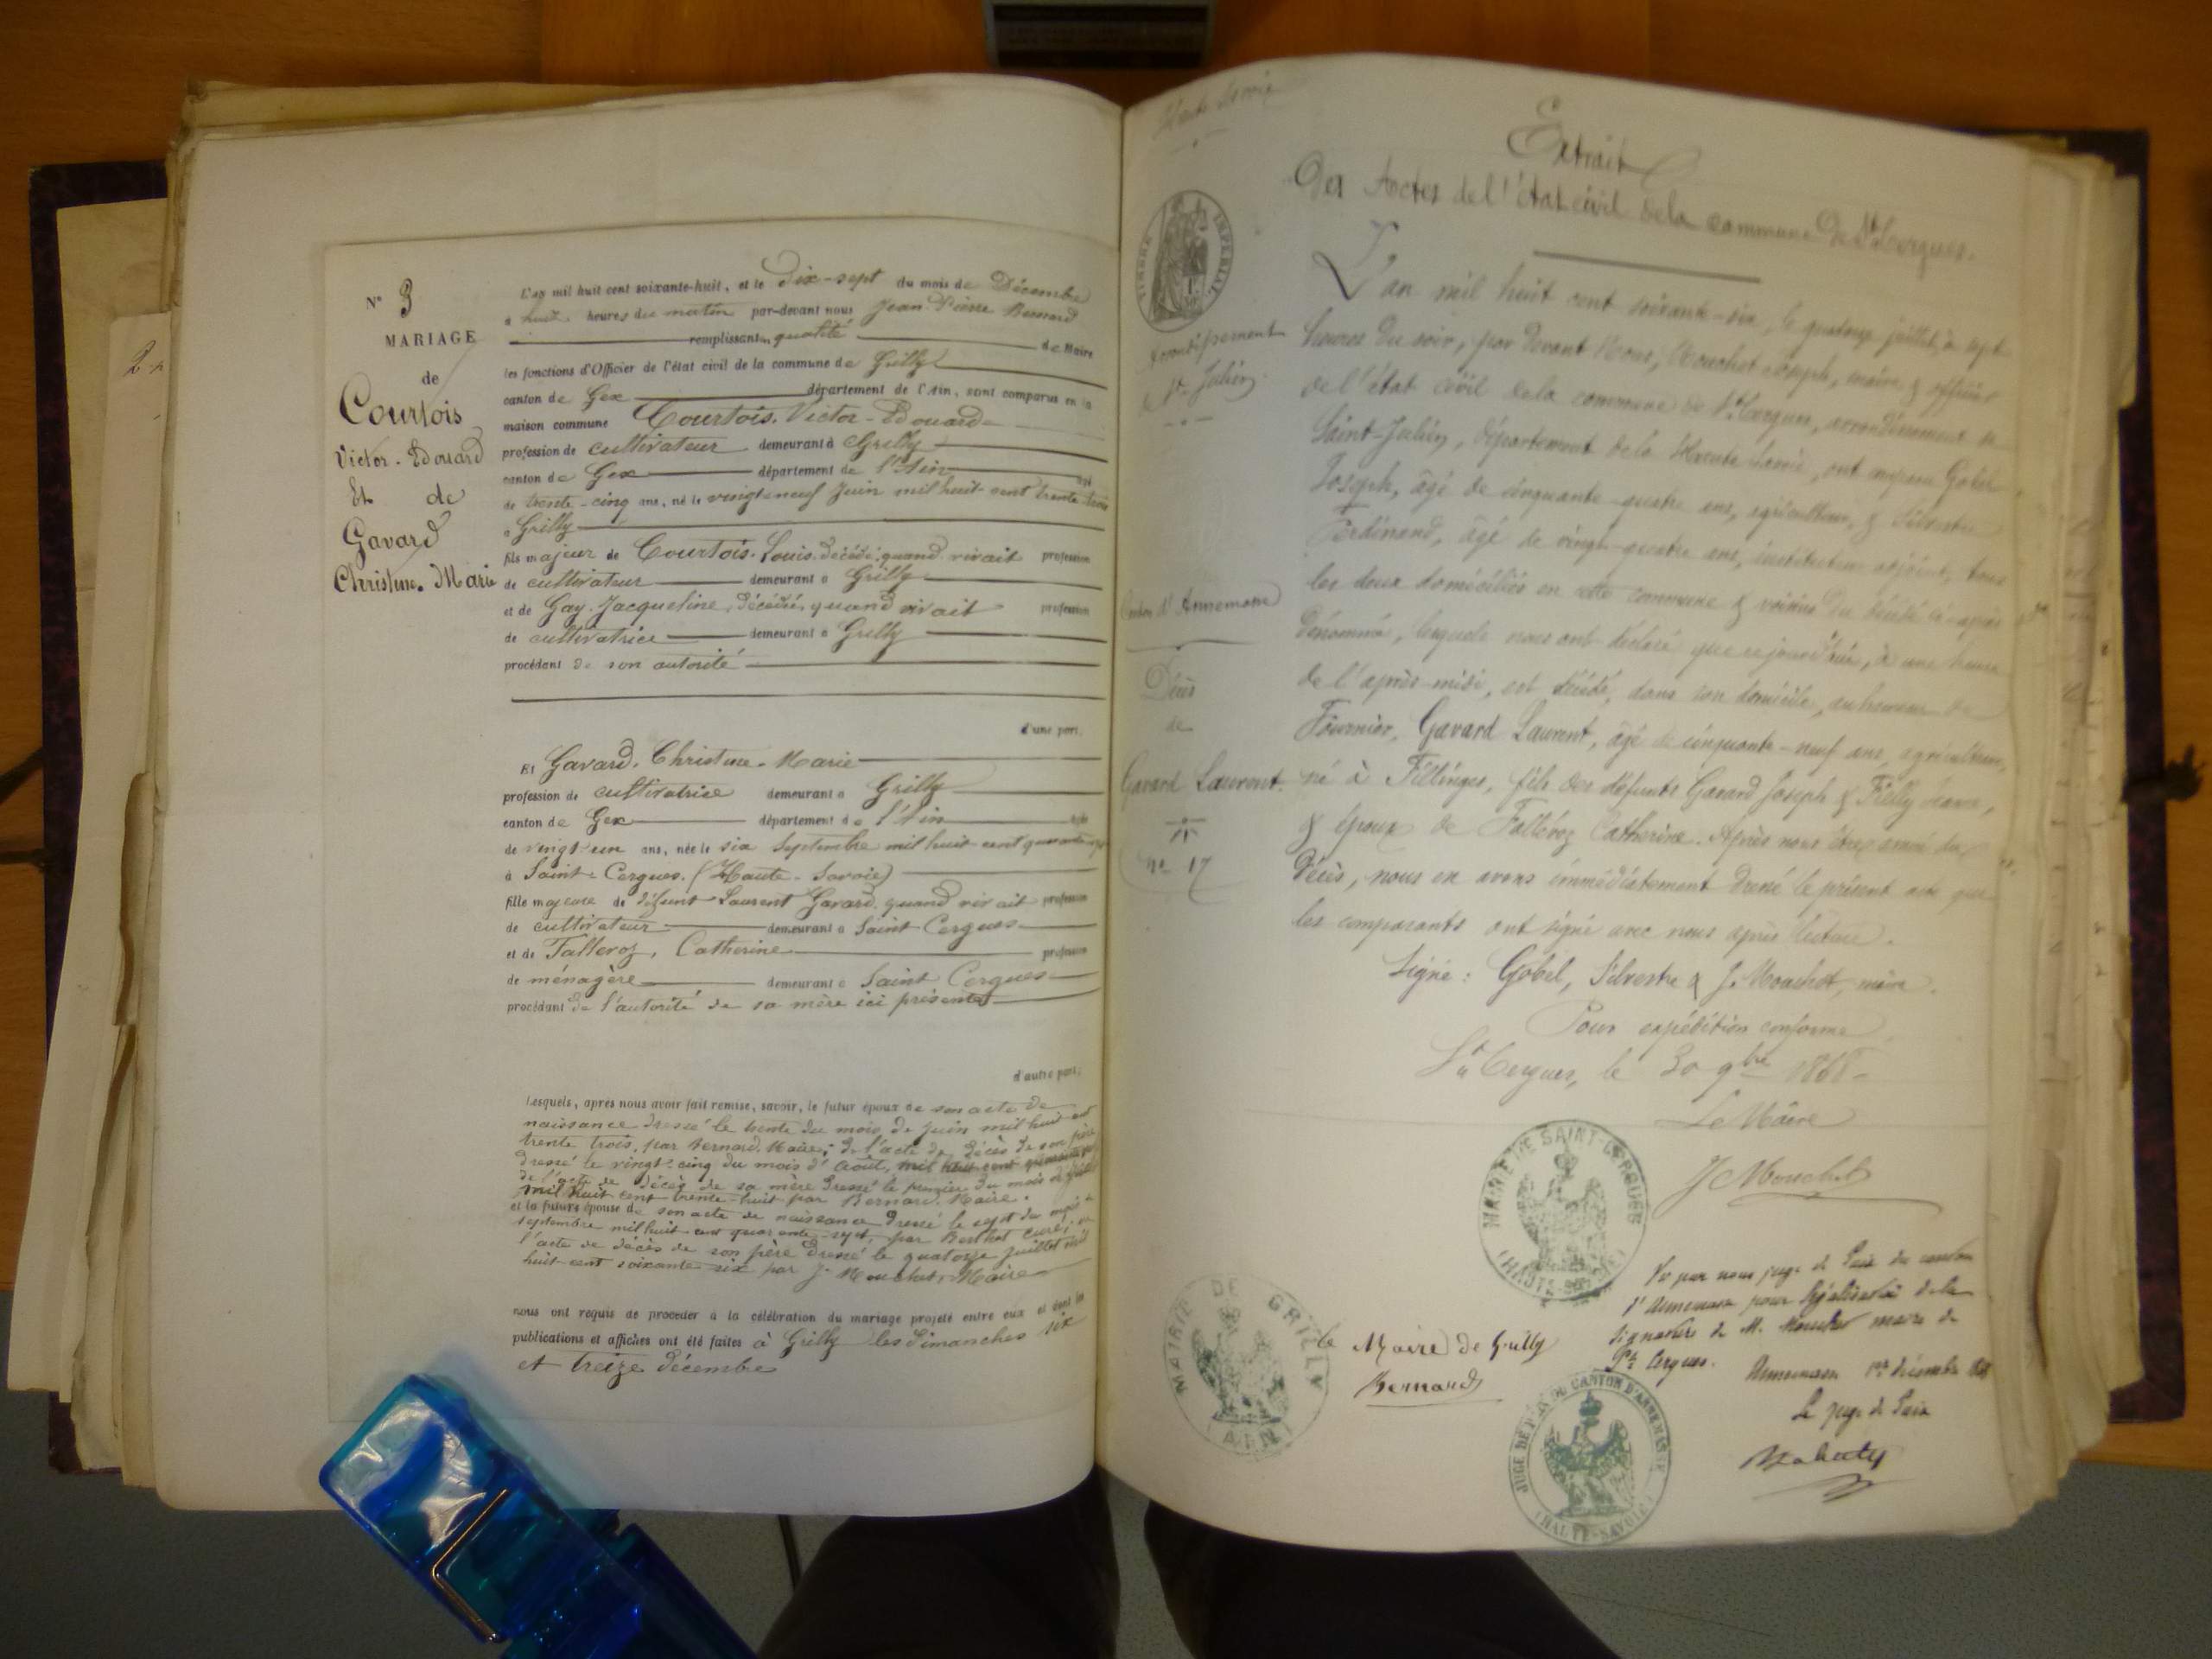 N° 3
MARIAGE
de
Courtois
Victor-Edouard
Et de
Gavard
Christine-Marie
L'an mil huit cent soixante-huit, et le Dix-sept du mois de Décembre
à huit heures du matin par-devant nous Jean-Pierre Bernard
remplissant en qualité de Maire
les fonctions d'Officier de l'état civil de la commune de Grilly
canton de Gex département de l'Ain, sont comparus en la
maison commune Courtois. Victor-Edouard
profession de cultivateur demeurant à Grilly
canton de Gex département de l'Ain âgé
de trente-cinq ans, né le vingt neuf Juin mil huit cent trente trois
à Grilly
fils majeur de Courtois. Louis. décédé, quand vivait profession
de cultivateur demeurant à Grilly
et de Gay. Jacqueline, décédée, quand vivait profession
de cultivatrice demeurant à Grilly
procédant de son autorité
d'une part,
Et Gavard. Christine-Marie
profession de cultivatrice demeurant à Grilly
canton de Gex département de l'Ain âgée
de vingt-un ans, née le six Septembre mil huit cent quarante-sept
à Saint-Cergues. (Haute-Savoie)
fille majeure de défunt Laurent Gavard. quand vivait profession
de cultivateur demeurant à Saint Cergues
et de Talleroz, Catherine profession
de ménagère demeurant à Saint Cergues
procédant de l'autorité de sa mère ici présente
d'autre part;
Lesquels, après nous avoir fait remise, savoir, le futur époux de son acte de
naissance dressé le trente du mois de juin mil huit cent
trente trois, par Bernard, Maire; de l'acte de décès de son père
dressé le vingt-cinq du mois d'Août, mil huit cent
de l'acte de décès de sa mère dressé le premier du mois de
mil huit cent trente-huit par Bernard, Maire.
et la future épouse de son acte de naissance dressé le sept du mois de
septembre mil huit cent quarante-sept, par Berthet curé; de
l'acte de décès de son père dressé le quatorze juillet mil
huit cent soixante six par J. Mouchet, Maire
nous ont requis de procéder à la célébration du mariage projeté entre eux et dont les
publications et affiches ont été faites à Grilly les dimanches six
et treize décembre
Haute Savoie
TIMBRE IMPÉRIAL
Arrondissement
St Julien
Canton d'Annemasse
Décès
de
Gavard Laurent.
n° 17
Extrait
Des Actes de l'état civil de la commune de St Cergues.
L'an mil huit cent soixante-six, le quatorze juillet, à sept
heures du soir, par devant Nous, Mouchet Joseph, maire & officier
de l'état civil de la commune de St Cergues, arrondissement de
Saint-Julien, département de la Haute Savoie, ont comparu Gobel
Joseph, âgé de cinquante-quatre ans, agriculteur, & Silvestre
Ferdinand, âgé de vingt-quatre ans, instituteur adjoint, tous
les deux domiciliés en cette commune & voisins du décédé ci-après
dénommé, lesquels nous ont déclaré que ce jourd'hui, à une heure
de l'après-midi, est décédé, dans son domicile, au hameau de
Fournier, Gavard Laurent, âgé de cinquante-neuf ans, agriculteur,
né à Fillinges, fils des défunts Gavard Joseph &
& époux de Talleroz Catherine. Après nous être assuré du
décès, nous en avons immédiatement dressé le présent acte que
les comparants ont signé avec nous après lecture.
Signé: Gobel, Silvestre & J. Mouchet, maire.
Pour expédition conforme
St Cergues, le 30 9bre 1868
Le Maire
J Mouchet
MAIRIE DE SAINT-CERGUES
(HAUTE-SAVOIE)
Vu par nous juge de Paix du canton
d'Annemasse pour légalisation de la
signature de M. Mouchet maire de
St Cergues. Annemasse 1er décembre 1868
Le juge de Paix
MAIRIE DE GRILLY
(AIN)
le Maire de Grilly
Bernard
JUGE DE PAIX DU CANTON D'ANNEMASSE
(HAUTE-SAVOIE)